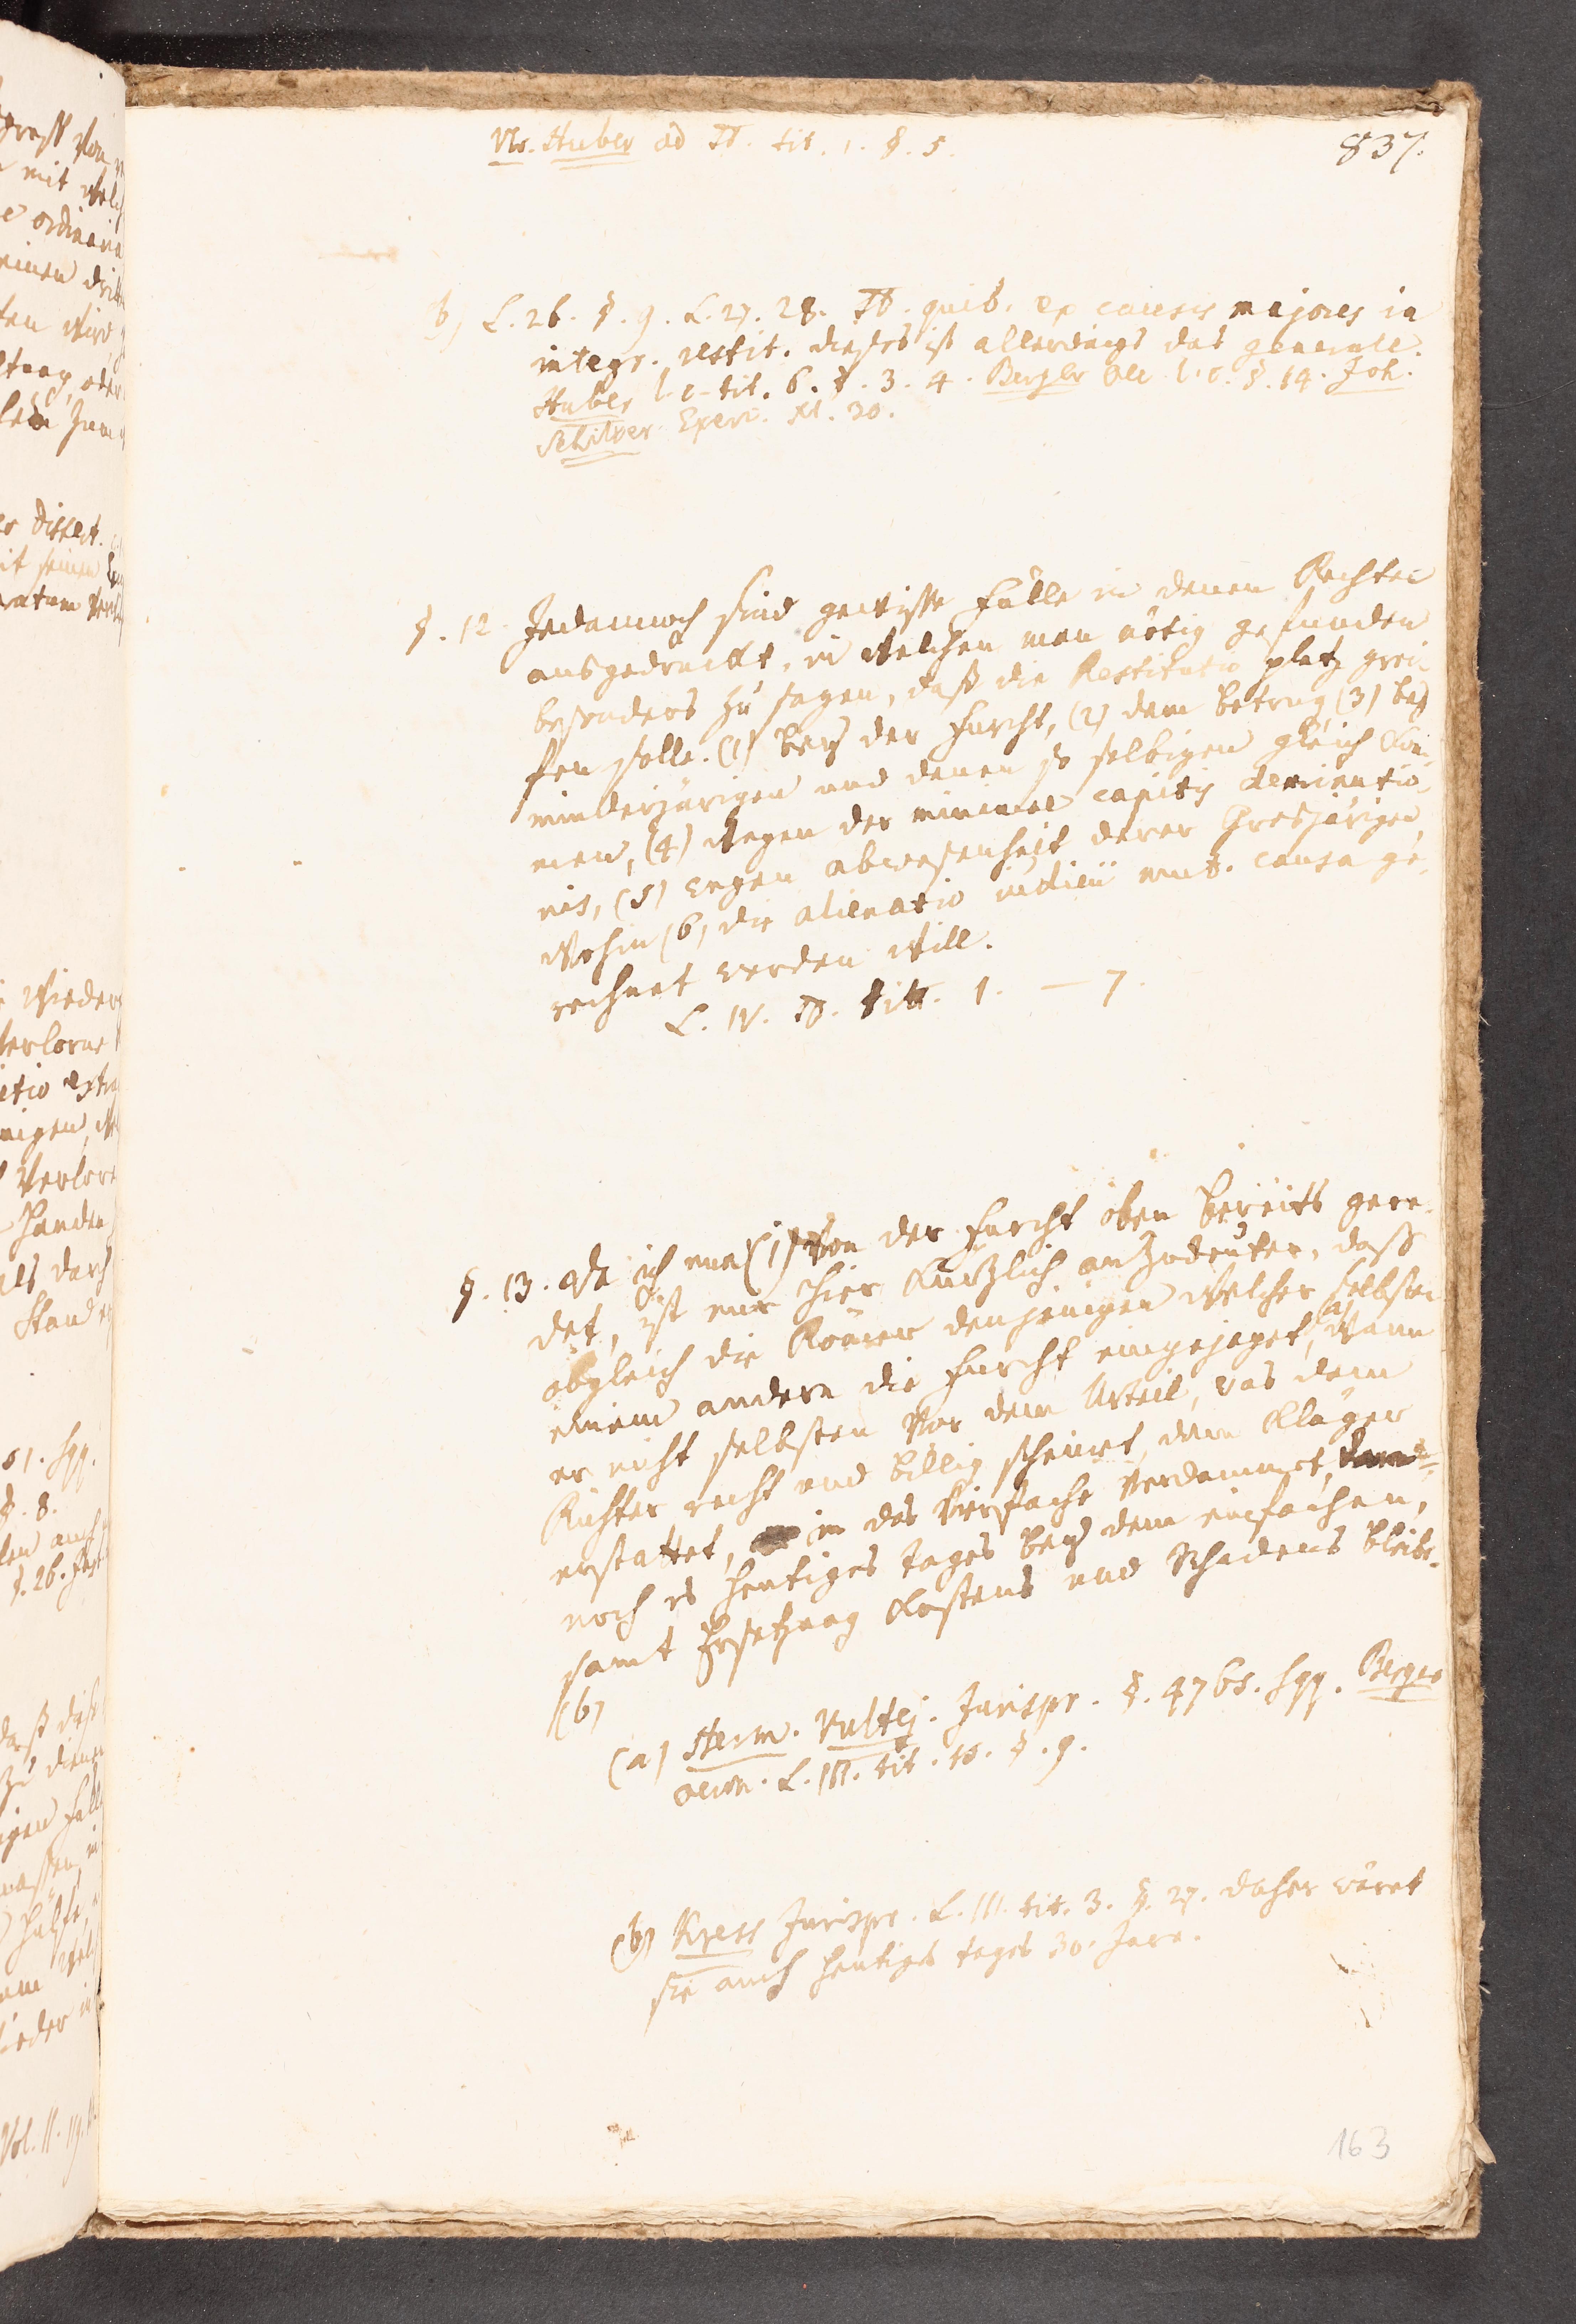 Ulr. Huber ad ff. tit. 1. §. 5.
837.
(b) L. 26. §. 9. L. 27. 28. ff. quib. ex causis majores in
integr. restit. dieses ist allerdings das generale.
Huber l. c. tit. 6. §. 3. 4. Berger Oec. l. c. §. 14. Joh.
Schilter Exerc. XI. 30.
§. 12. Jedannoch sind gewisse Fälle in denen Rechten
ausgedruckt, in welchen man nötig gefunden
besonders zu sagen, daß die Restitutio platz grei-
fen solle. (1) bey der Furcht, (2) dem Betrug (3) bey
minderjärigen und denen so selbigen gleich kom-
men, (4) wegen der minimae capitis deminutio-
nis, (5) wegen abwesenheit derer Grosjärigen,
wohin (6) die alienatio iudicii mut. causa ge-
rechnet werden will.
L. IV. ff. titt. 1. — 7.
§. 13. Da ich nun (1) von der Furcht oben bereits gere-
det, ist nur hier kürtzlich anzudeuten, daß
obgleich die Römer denjenigen welcher selbsten
einem andern die Furcht eingejaget, (a) wann
er nicht selbsten vor dem Urteil, was dem
Richter recht und billig scheinet, dem Kläger
erstattet, in das Vierfache verdammet, dann-
noch es heutiges tages bey dem einfachen,
samt Ersetzung Kostens und Schadens bleibe.
(b)
(a) Herm. Vultej. Jurispr. §. 4765. sqq. Berger
oecon. L. III. tit. 10. §. 9.
(b) Kress Jurispr. L. III. tit. 3. §. 27. daher wäret
sie auch heutiges tages 30. Jare.
163